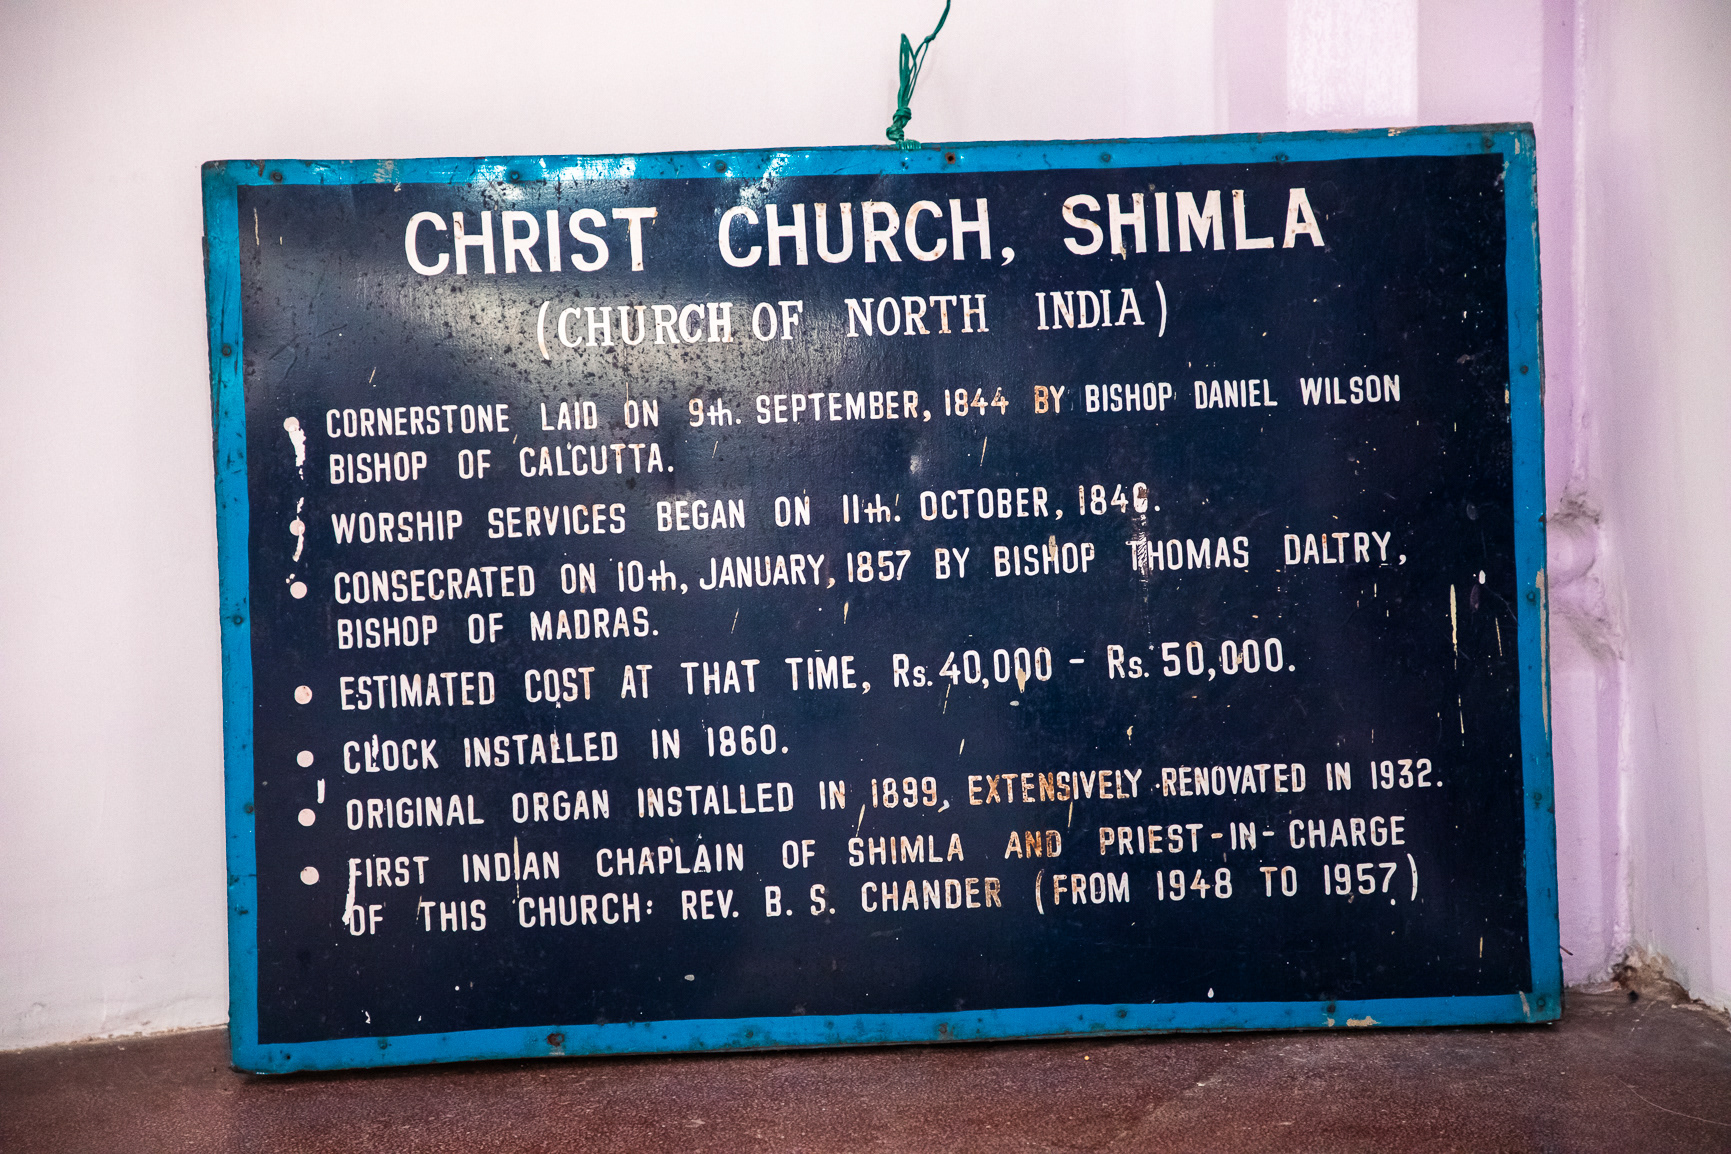 CHRIST CHURCH, SHIMLA
(CHURCH OF NORTH INDIA)
• CORNERSTONE LAID ON 9th. SEPTEMBER, 1844 BY BISHOP DANIEL WILSON
BISHOP OF CALCUTTA.
• WORSHIP SERVICES BEGAN ON 11th. OCTOBER, 1846.
• CONSECRATED ON 10th, JANUARY, 1857 BY BISHOP THOMAS DALTRY,
BISHOP OF MADRAS.
• ESTIMATED COST AT THAT TIME, Rs. 40,000 - Rs. 50,000.
• CLOCK INSTALLED IN 1860.
• ORIGINAL ORGAN INSTALLED IN 1899, EXTENSIVELY RENOVATED IN 1932.
• FIRST INDIAN CHAPLAIN OF SHIMLA AND PRIEST-IN-CHARGE
OF THIS CHURCH: REV. B. S. CHANDER (FROM 1948 TO 1957)